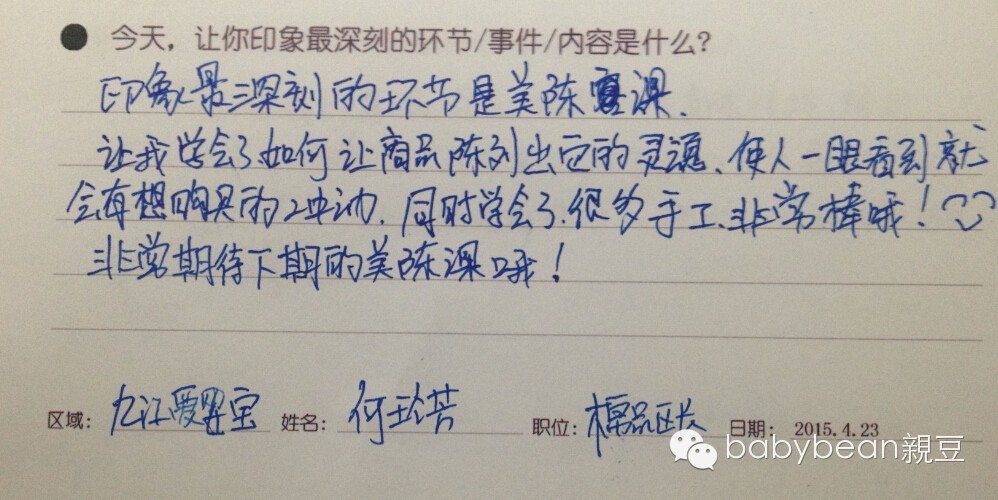 ● 今天，让你印象最深刻的环节/事件/内容是什么？
印象最深刻的环节是美陈课.
让我学会了如何让商品陈列出它的灵魂、使人一眼看到就
会有想购买的冲动. 同时学会了很多手工、非常棒哦！
非常期待下期的美陈课哦！
区域：九江爱婴宝 姓名：何玲芳 职位：棉品区长 日期：2015.4.23
babybean親豆